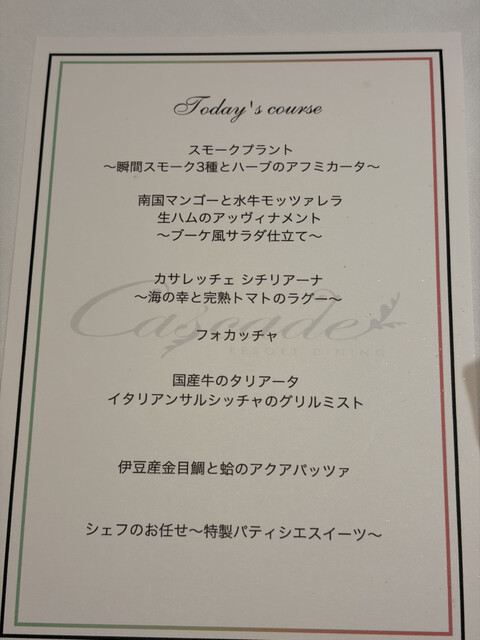 Today's course
スモークプラント
～瞬間スモーク3種とハーブのアフミカータ～
南国マンゴーと水牛モッツァレラ
生ハムのアッヴィナメント
～ブーケ風サラダ仕立て～
カサレッチェ シチリアーナ
～海の幸と完熟トマトのラグー～
Cascade
フォカッチャ
RESORT DINING
国産牛のタリアータ
イタリアンサルシッチャのグリルミスト
伊豆産金目鯛と蛤のアクアパッツァ
シェフのお任せ～特製パティシエスイーツ～